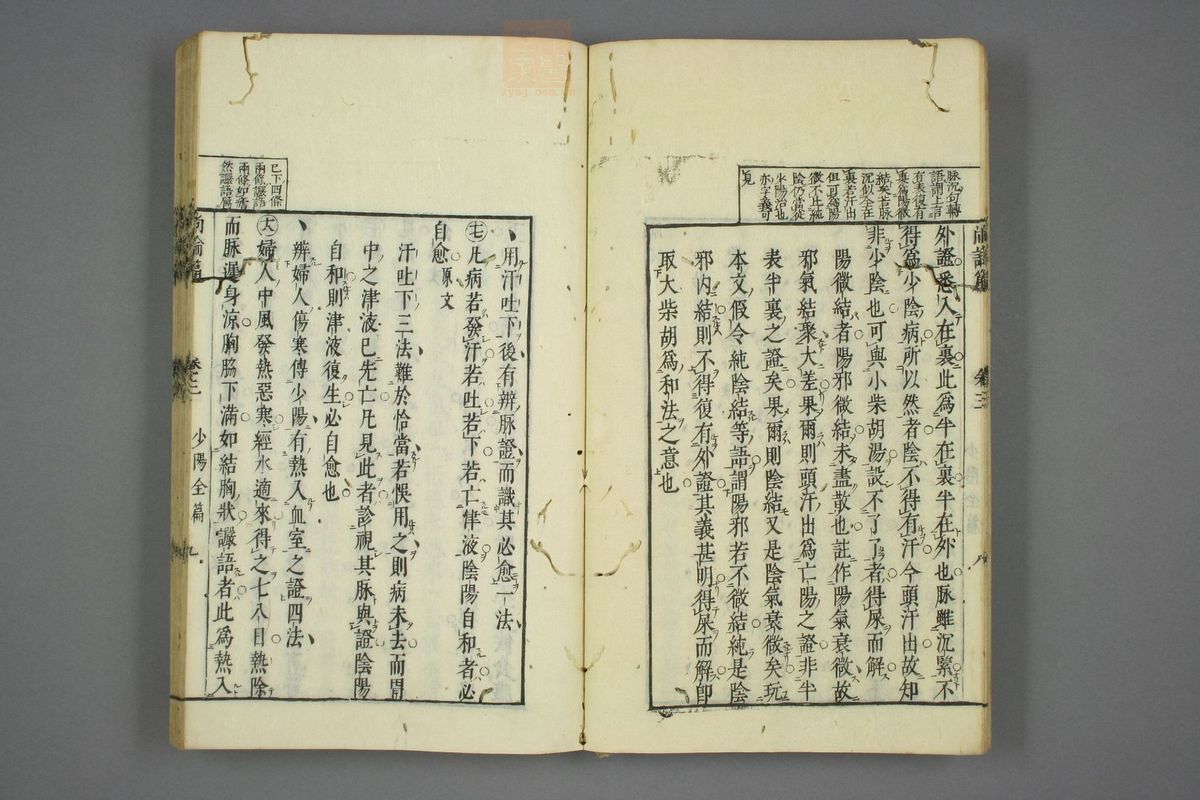 脉沉句轉
語謂上言
有表復有
裏爲陽微
結矣若脉
沉似全在
裏若汗出
但可爲陽
微不止純
陰仍當從
少陽治也
亦字義可
見
外證悉入在裏此爲半在裏半在外也脉雖沉緊不
得爲少陰病所以然者陰不得有汗今頭汗出故知
非少陰也可與小柴胡湯設不了了者得屎而解
陽微結者陽邪微結未盡散也註作陽氣衰微故
邪氣結聚大差果爾則頭汗出爲亡陽之證非半
表半裏之證矣果爾則陰結又是陰氣衰微矣玩
本文假令純陰結等語謂陽邪若不微結純是陰
邪内結則不得復有外證其義甚明得屎而解卽
取大柴胡爲和法之意也
尚論篇 卷三
用汗吐下後有辨脉證而識其必愈一法
七凡病若發汗若吐若下若亡律液陰陽自和者必
自愈原文
汗吐下三法難於恰當若悞用之則病未去而胃
中之津液已先亡凡見此者診視其脉與證陰陽
自和則津液復生必自愈也
辨婦人傷寒傳少陽有熱入血室之證四法
婦人中風發熱惡寒經水適來得之七八日熱除
而脉遲身涼胸脇下滿如結胸狀讝語者此爲熱入
已下四條
兩條讝語
兩條如瘧
然讝語屬
尚論篇 卷之三 少陽全篇 九